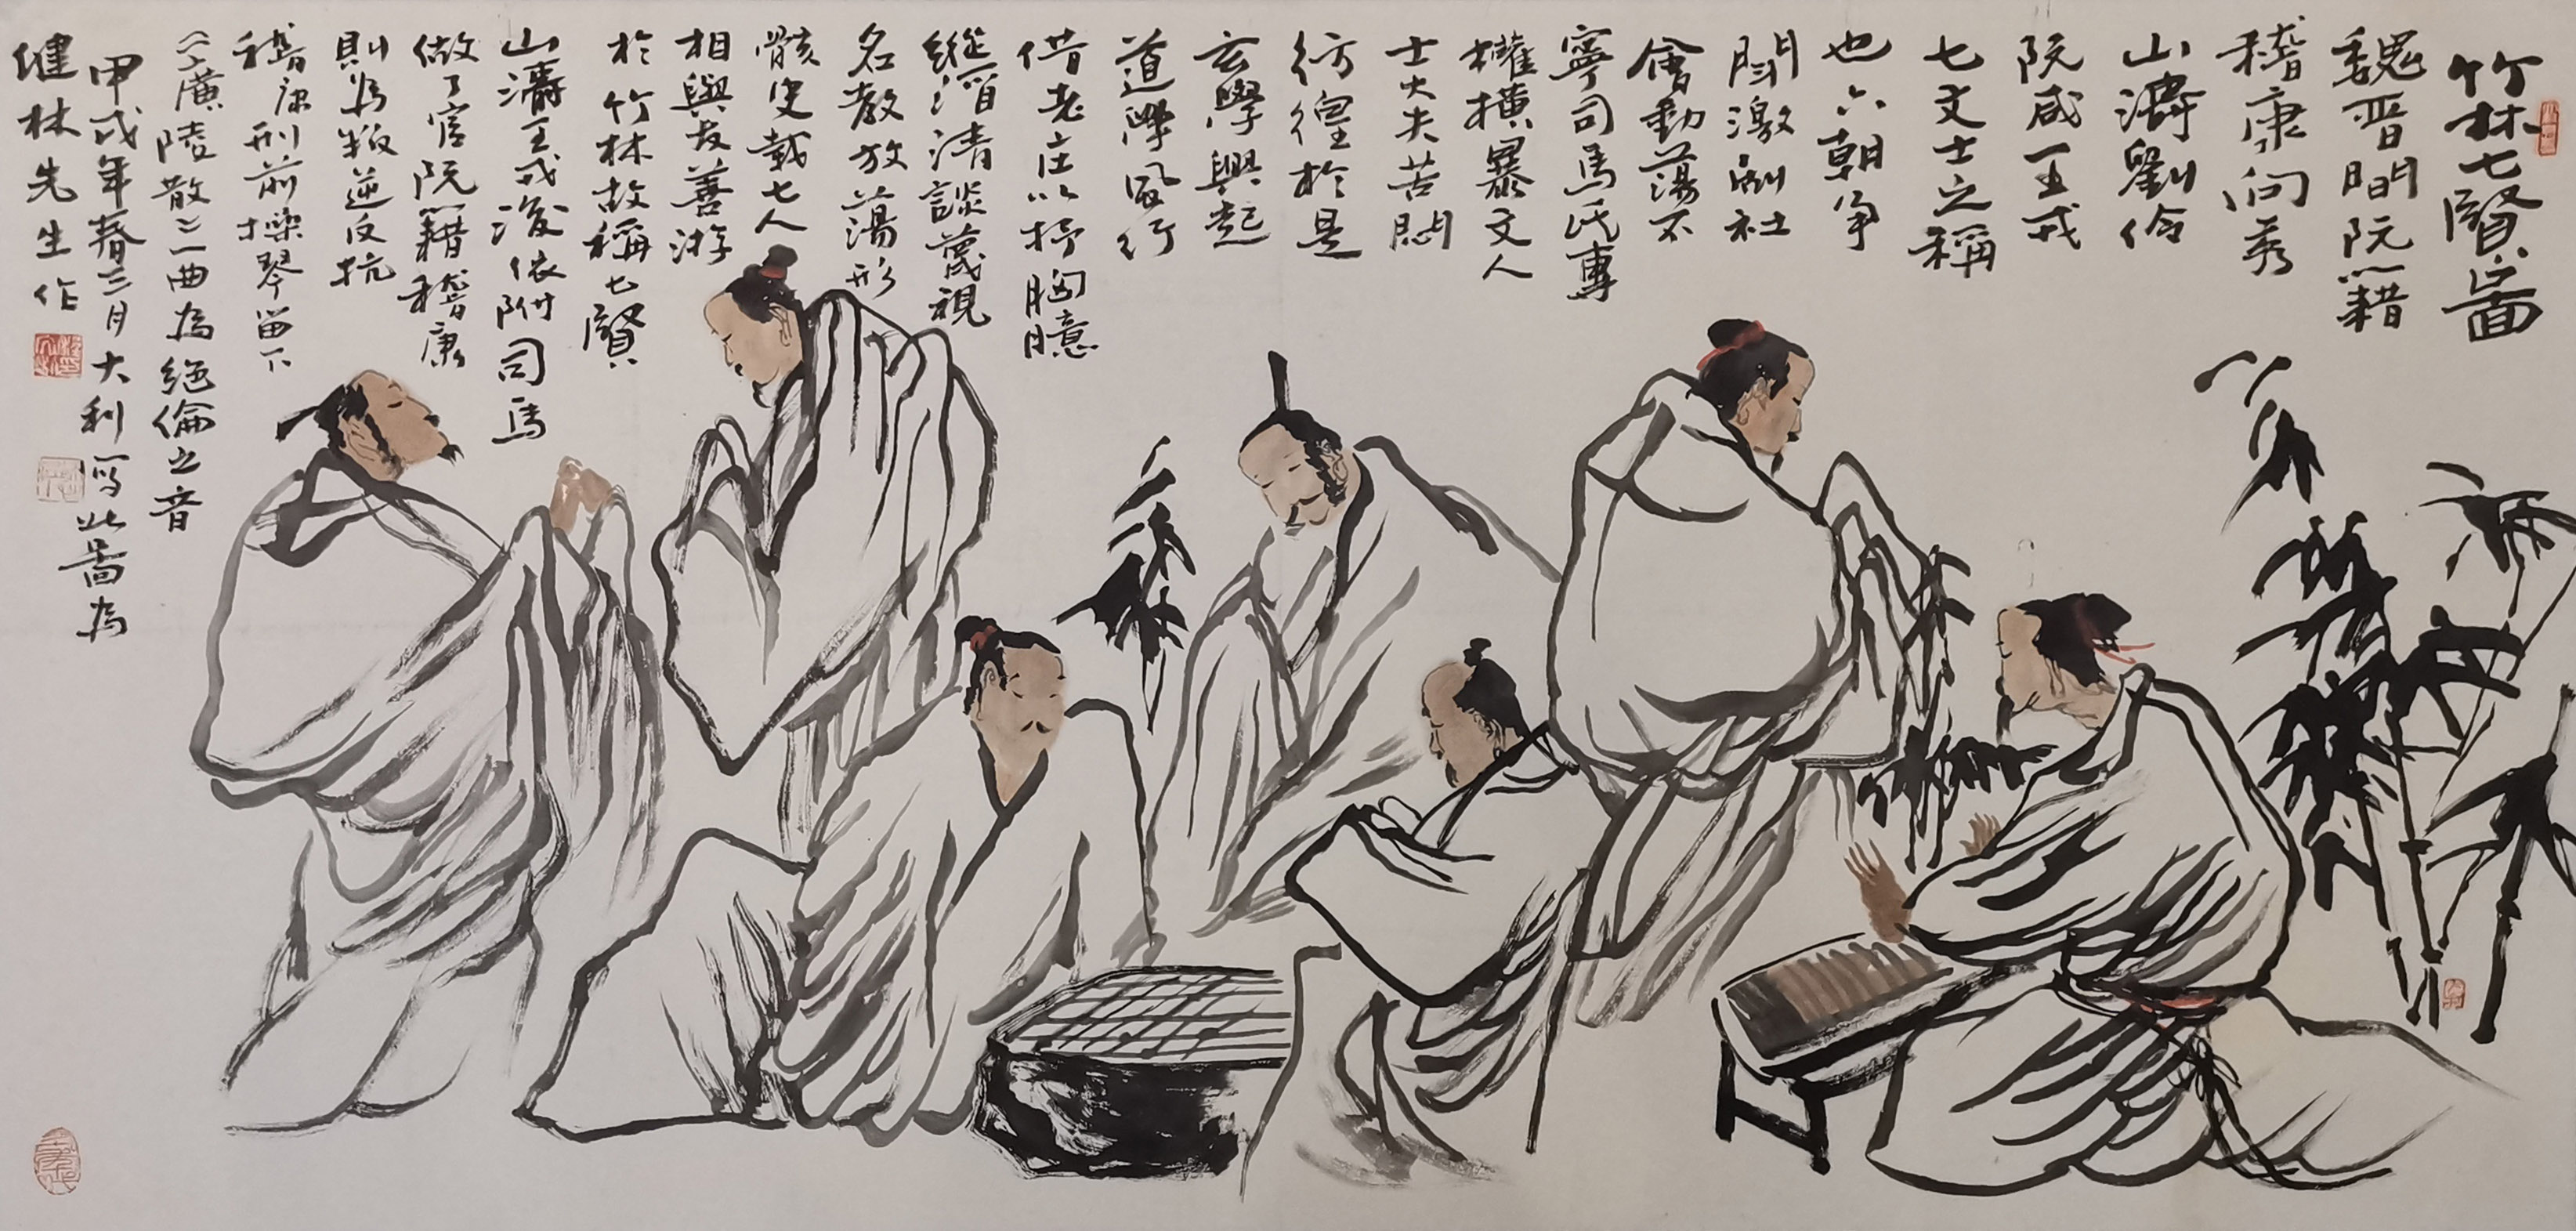 竹林七賢啚
魏晋間阮籍
嵇康向秀
山濤劉伶
阮咸王戎
七文士之稱
也六朝争
閗激劇社
會動蕩不
寧司馬氏專
權横暴文人
士大夫苦悶
彷徨於是
玄學興起
道學風行
借老庄以抒胸臆
縱酒清談蔑視
名教放蕩形
骸史載七人
相與友善游
於竹林故稱七賢
山濤王戎後依附司馬
做了官阮籍嵇康
則為叛逆反抗
嵇康刑前操琴留下
廣陵散二曲為絕倫之音
甲戌年春三月大利写此啚為
健林先生作